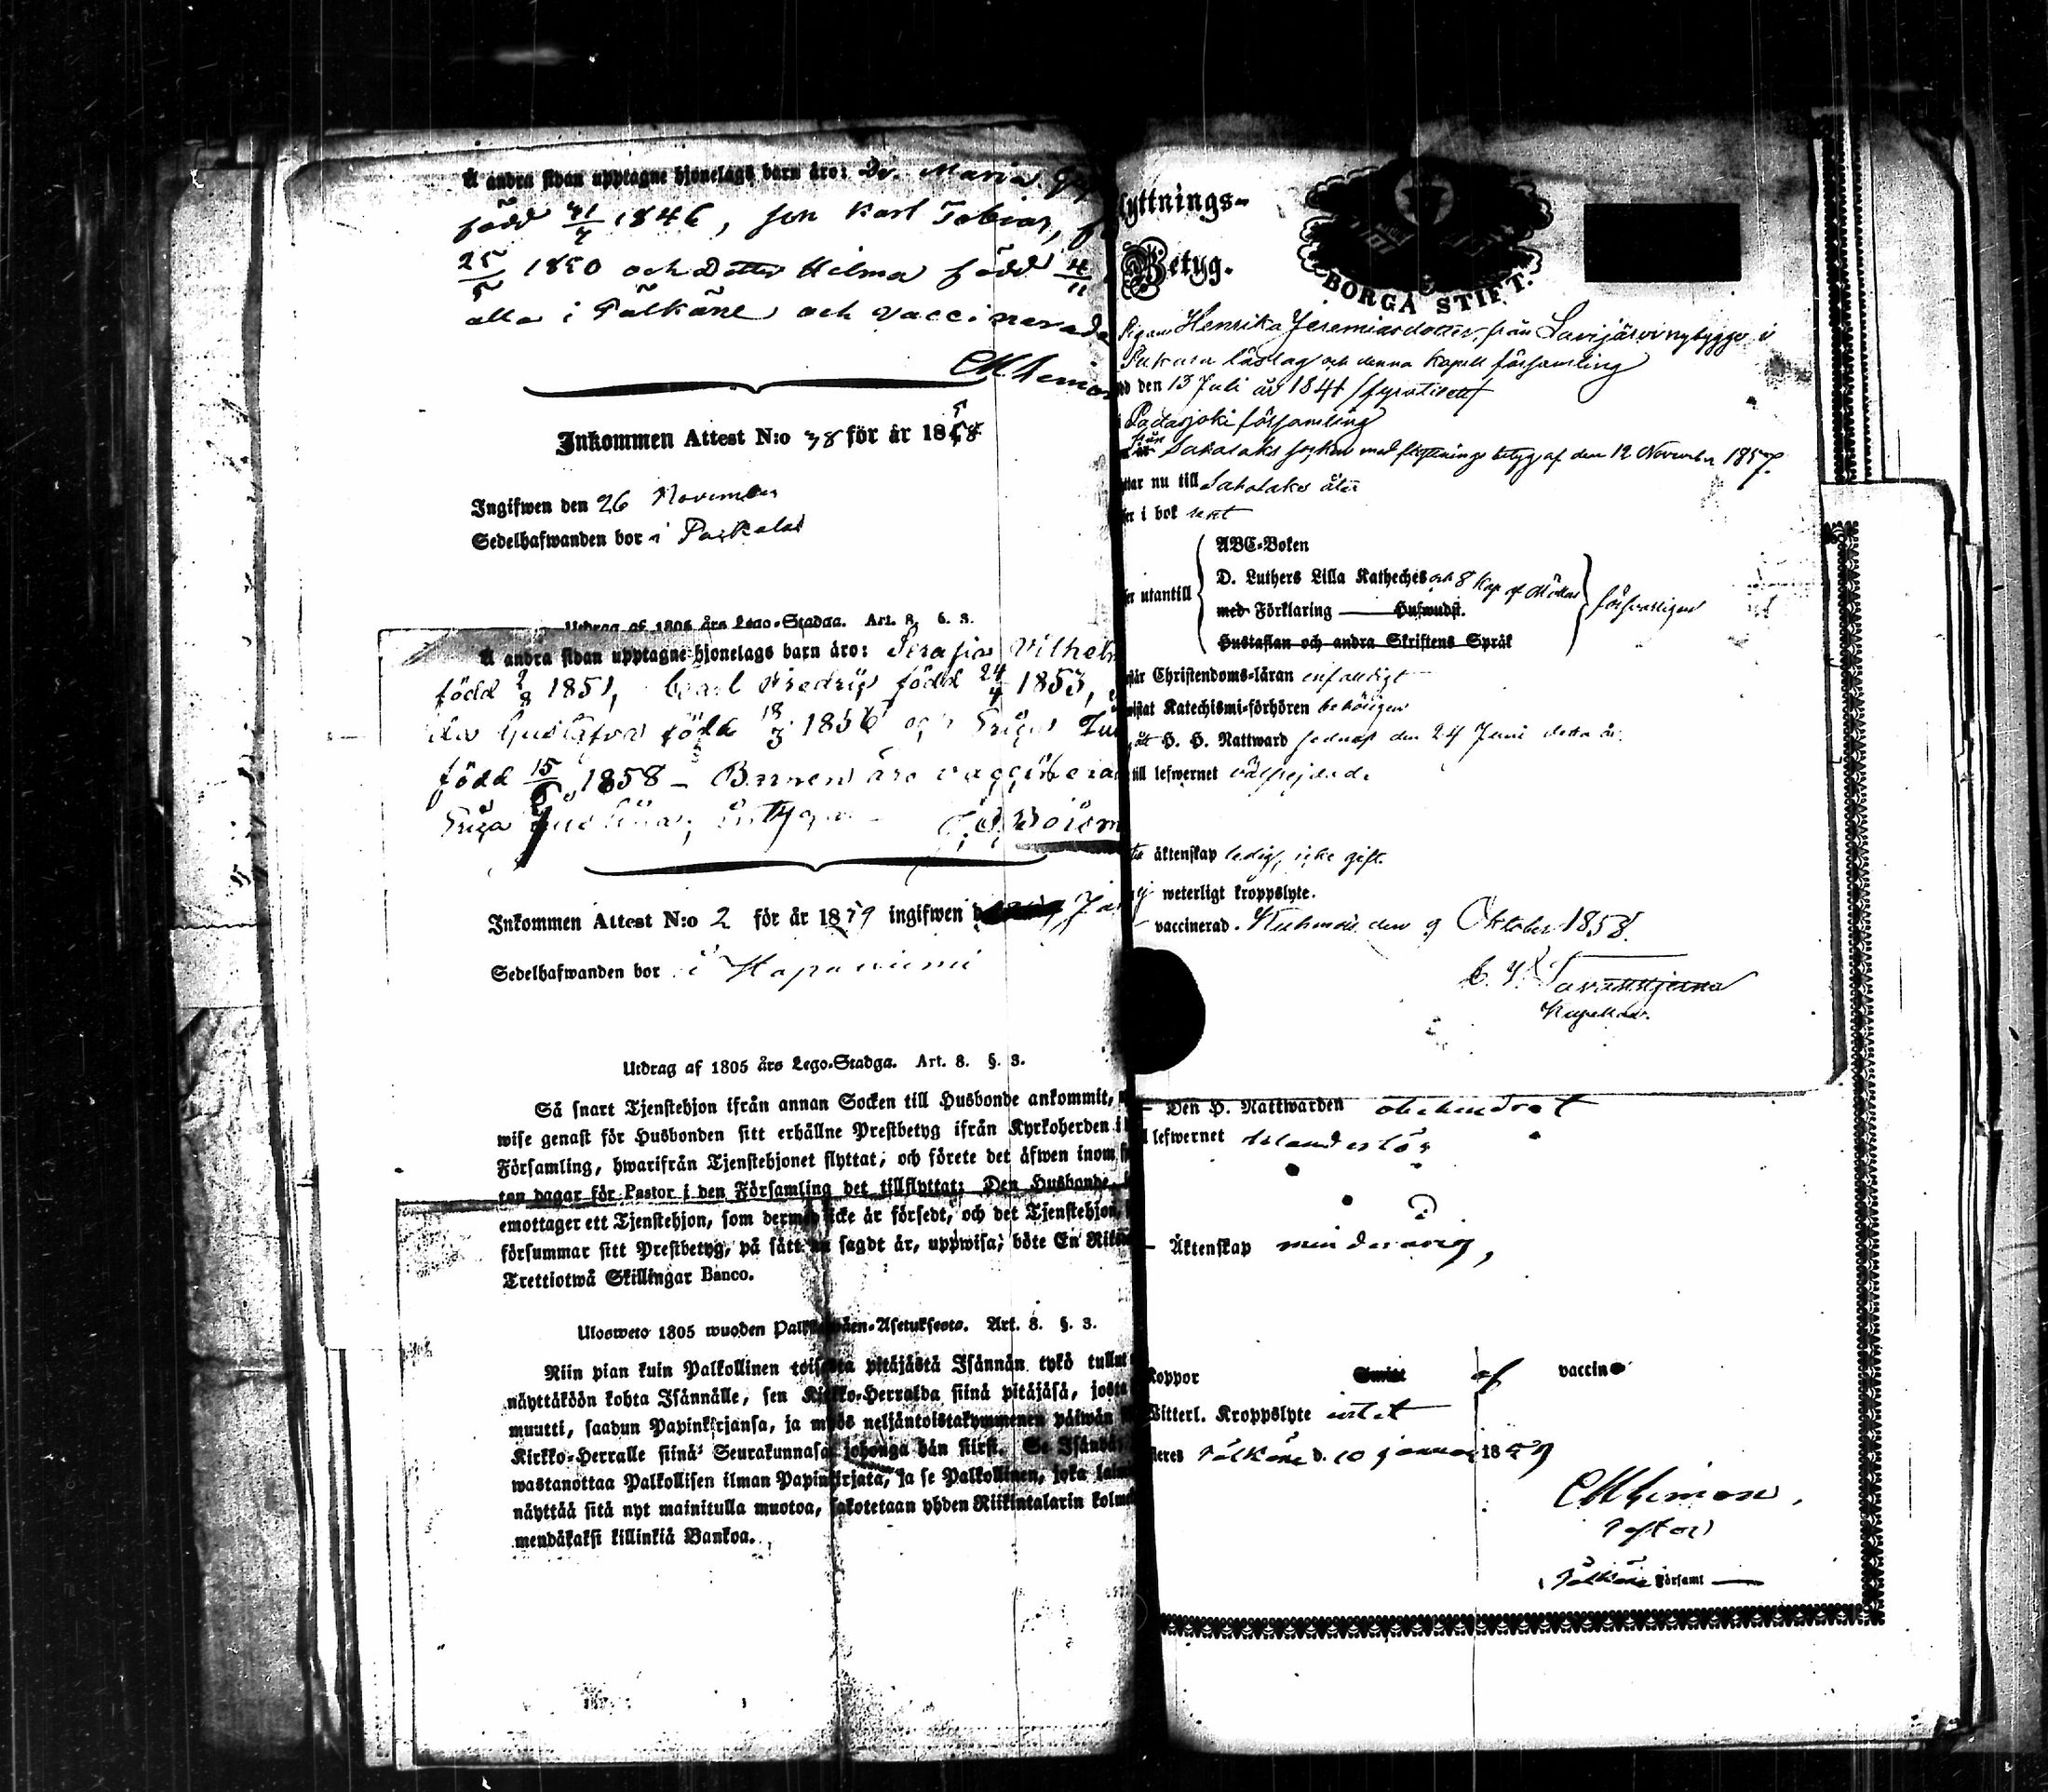 Å andra sidan upptagne hjonelags barn äro: Dr. Maria
född 1846, son Karl Tobias,
25/5 1850 och Dotter Hilma född 4/11
alla i Pälkäne och vaccinerade
Inkommen Attest N:o 38 för år 1858
Ingifwen den 26 November
Sedelhafwanden bor i
Utdrag af 1805 års Lego-Stadga. Art. 8. §. 3.
Å andra sidan upptagne hjonelags barn äro: Serafia Vilhelm
född 2/8 1851, Carl Fredrik född 24/4 1853,
Gustafva född 18/3 1856 och
född 15/6 1858 – Barnen äro vaccinera
Inkommen Attest N:o 2 för år 1859 ingifwen
Sedelhafwanden bor i Haponiemi
Utdrag af 1805 års Lego-Stadga. Art. 8. §. 3.
Så snart Tjenstehjon ifrån annan Socken till Husbonde ankommit,
wise genast för Husbonden sitt erhållne Prestbetyg ifrån Kyrkoherden i
Församling, hwarifrån Tjenstehjonet flyttat, och förete det äfwen inom
ton dagar för Pastor i den Församling det tillflyttat; Den Husbonde,
emottager ett Tjenstehjon, som dermed icke är försedt, och det Tjenstehjon,
försummar sitt Prestbetyg, på sätt nu sagdt är, uppwisa, böte En Riks
Trettiotwå Skillingar Banco.
Ulosweto 1805 wuoden Palkkawäen-Asetuksesta. Art. 8. §. 3.
Niin pian kuin Palkollinen toisesta pitäjästä Isännän tykö tullut
näyttäköön kohta Isännälle, sen Kirkko-Herralda siinä pitäjäsä, josta
muutti, saadun Papinkirjansa, ja myös neljäntoistakymmenen päiwän
Kirkko-Herralle siinä Seurakunnasa johonga hän siirst. Se Isändä,
wastanottaa Palkollisen ilman Papinkirjata, ja se Palkollinen, joka
näyttää sitä nyt mainitulla muotoa, sakotetaan yhden Riikintalarin kolme
mendäkaksi killinkiä Bankoa.
lyttnings-
Betyg.
BORGÅ STIFT.
Pigan Henrika Jeremiasdotter, från Savijärvi nybygge i
Pukara läslag och denna Kapell församling
den 13 Juli år 1841 /fyratioett/
Padasjoki församling
från Sahalaks socken med flyttnings betyg af den 12 November 1857.
ttar nu till Sahalaks åter
er i bok rent
er utantill
ABC-Boken
D. Luthers Lilla Kateches och 8 Kap af
med Förklaring — Hufwudst.
Hustaflan och andra Skriftens Språk
försvarligen
står Christendoms-läran enfaldigt
wistat Katechismi-förhören behörigen
H. H. Nattward sednast den 24 Juni detta år.
till lefwernet välfrejdad
äktenskap ledig, icke gift.
weterligt kroppslyte.
vaccinerad. Kuhmois den 9 Oktober 1858.
Tavaststjerna
Kapellan.
Den H. Nattwarden obehindrat
lefwernet
Äktenskap minderårig,
Koppor
af vaccin
Witterl. Kroppslyte intet
Pälkäne d. 10 Januari 1859
Pastor
i Pälkäne Församl